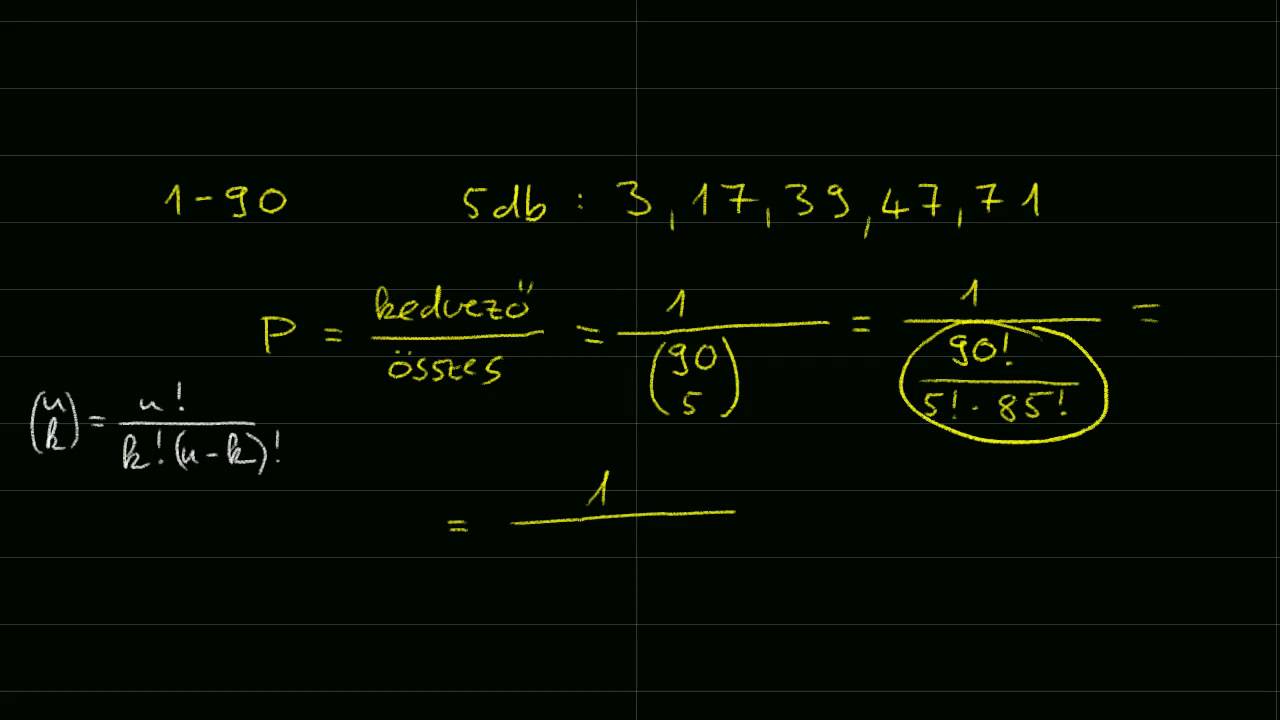 1-90 5db : 3, 17, 39, 47, 71
P = kedvező / összes = 1 / (90 5) = 1 / (90! / 5! · 85!) =
(n k) = n! / k! (n-k)!
= 1 /